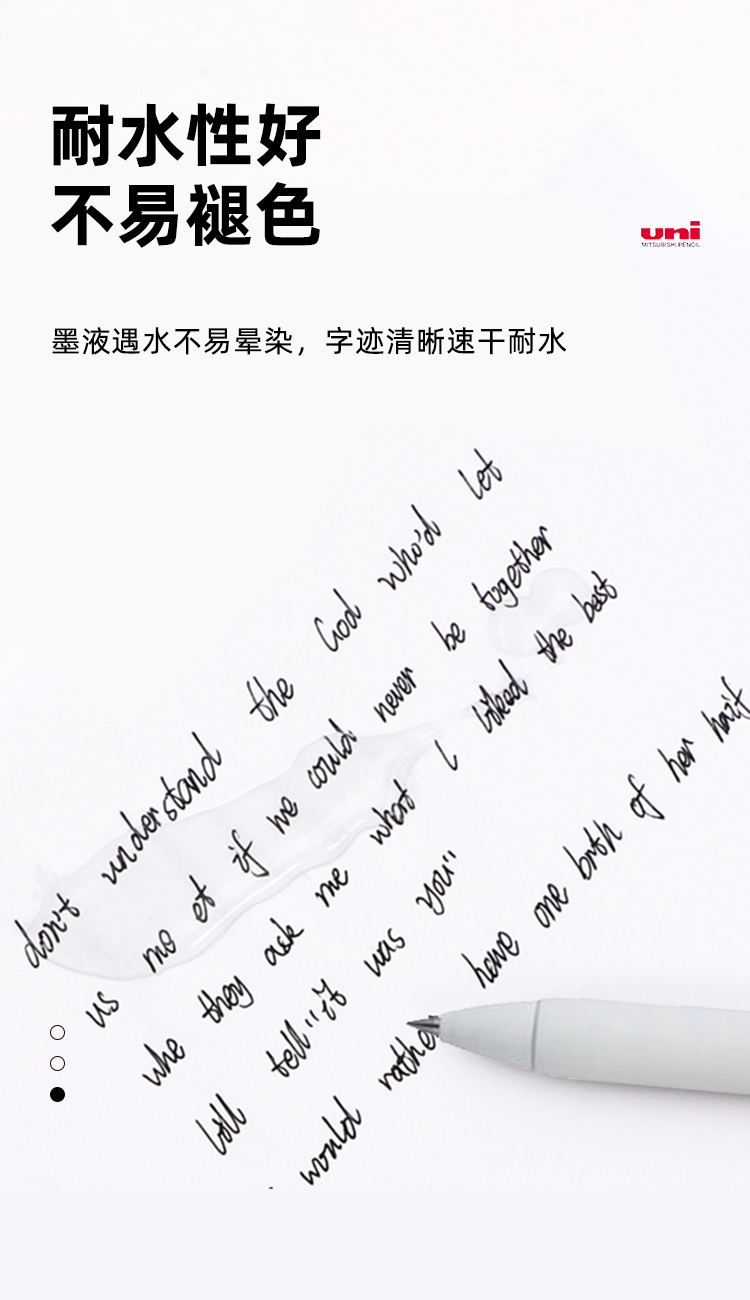 耐水性好
不易褪色
uni
MITSUBISHI PENCIL
墨液遇水不易晕染，字迹清晰速干耐水
don't understand the God who'd let
us me et if we could never be together
whe they ask me what l liked the best
lill tell "it was you"
would rathe have one brth of her hair